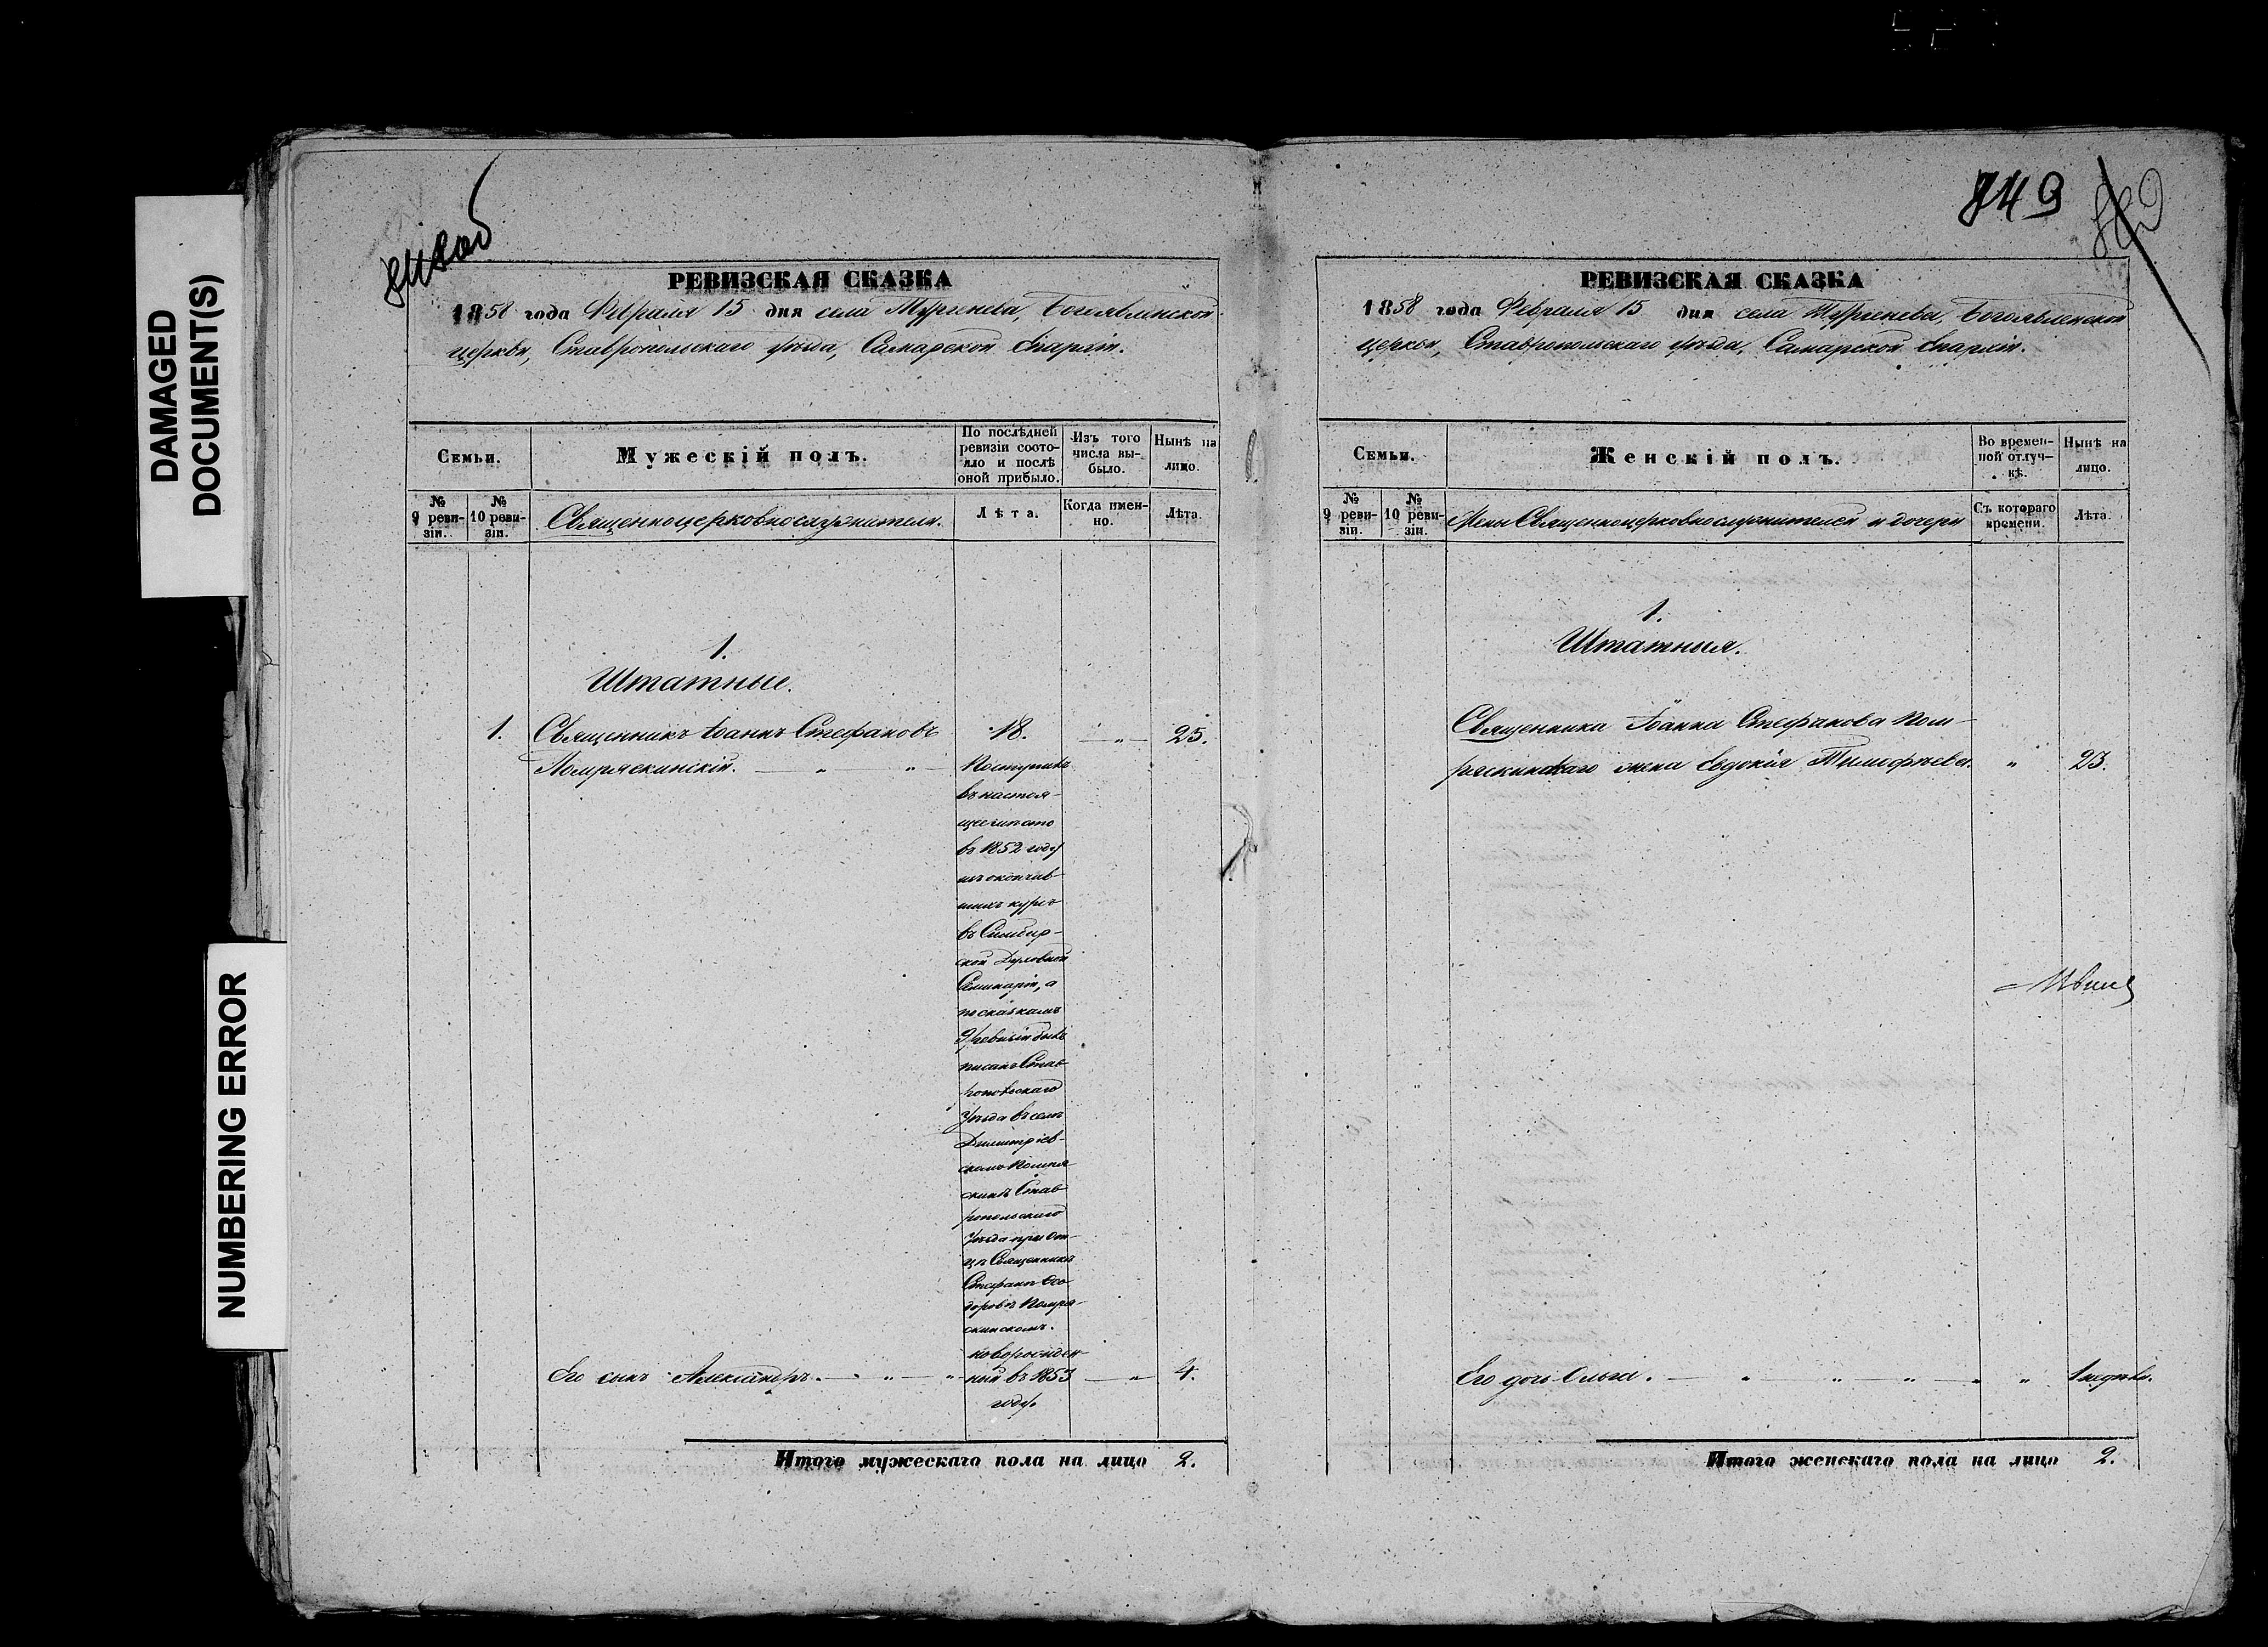 DAMAGED
DOCUMENT(S)
NUMBERING ERROR
РЕВИЗСКАЯ СКАЗКА
1858 года Февраля 15 дня села Тургенева, Богоявленской
церкви, Ставропольскаго уѣзда, Самарской Епархіи.
Семьи.
Мужескій полъ.
По послѣдней
ревизіи состо-
яло и послѣ
оной прибыло.
Изъ того
числа вы-
было.
Нынѣ на
лицо.
№
9 реви-
зіи.
№
10 реви-
зіи.
Священноцерковнослужители.
Лѣта.
Когда имен-
но.
Лѣта.
1.
Штатные.
1. Священникъ Іоаннъ Стефановъ 18. „ 25.
Помряскинскій. „ „ Поступилъ
въ настоя-
щее мѣсто
въ 1852 году
изъ окончив-
шихъ курсъ
въ Симбир-
ской Духовной
Семинаріи, а
по сказкамъ
9 ревизіи былъ
писанъ Став-
ропольскаго
Уѣзда въ селѣ
Димитріев-
скомъ Помря-
скинѣ Став-
ропольскаго
Уѣзда при От-
цѣ Священникѣ
Стефанѣ Ѳео-
доровѣ Помря-
скинскомъ.
Его сынъ Александръ. „ „ новорожден-
ный въ 1853 „ 4.
году.
Итого мужескаго пола на лицо 2.
749
РЕВИЗСКАЯ СКАЗКА
1858 года Февраля 15 дня села Тургенева, Богоявленской
церкви, Ставропольскаго уѣзда, Самарской Епархіи.
Семьи.
Женскій полъ.
Во времен-
ной отлуч-
кѣ.
Нынѣ на
лицо.
№
9 реви-
зіи.
№
10 реви-
зіи.
Жены Священноцерковнослужителей и дочери
Съ котораго
времени.
Лѣта.
1.
Штатныя.
Священника Іоанна Стефанова Пом-
ряскинскаго жена Евдокія Тимофѣева. „ 23.
Его дочь Ольга. „ „ „ „ 1 недѣли.
Итого женскаго пола на лицо 2.